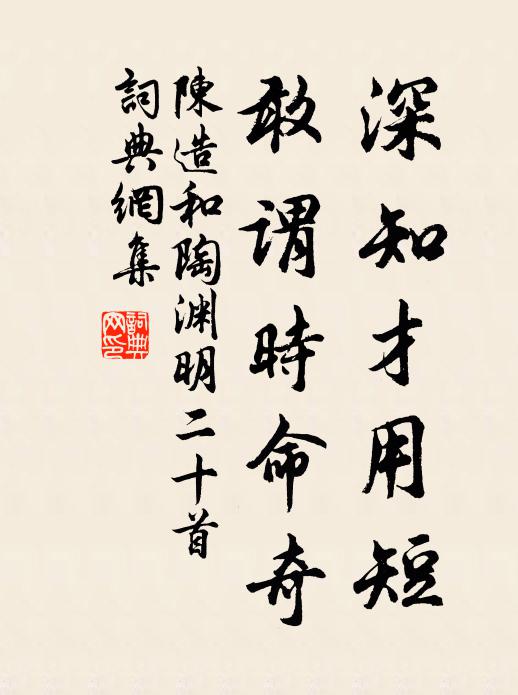 深知才用短
敢謂時命奇
陳造和陶淵明二十首
詞典網集
詞典網印